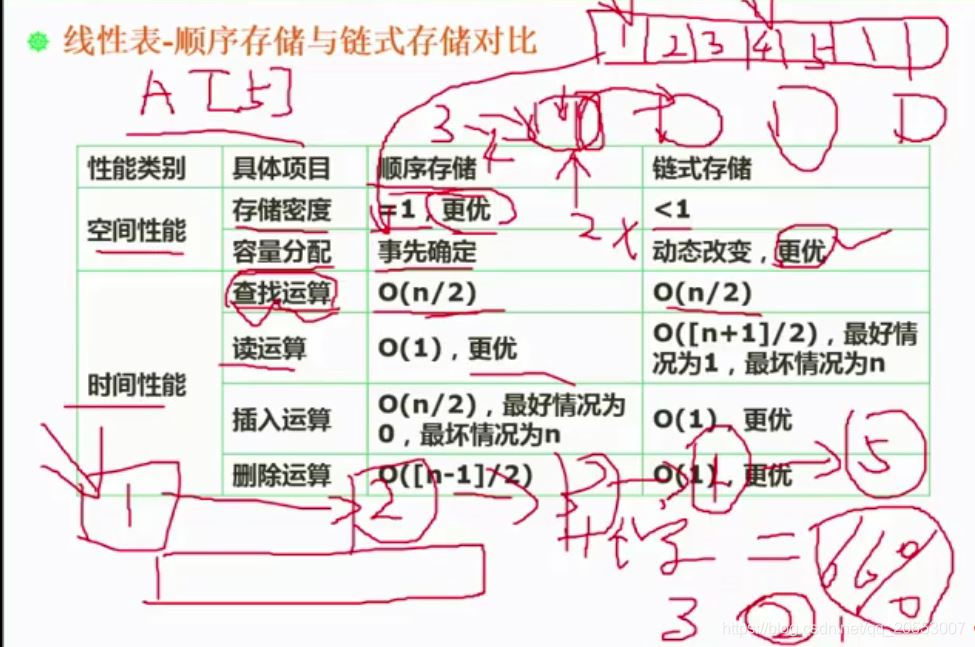 线性表-顺序存储与链式存储对比
1 2 3 4 5
A[5]
3
性能类别 具体项目 顺序存储 链式存储
空间性能 存储密度 =1，更优 <1
容量分配 事先确定 动态改变，更优
2 X
时间性能 查找运算 O(n/2) O(n/2)
读运算 O(1)，更优 O([n+1]/2)，最好情
况为1，最坏情况为n
插入运算 O(n/2)，最好情况为
0，最坏情况为n O(1)，更优
删除运算 O([n-1]/2) O(1)，更优
1 2 5
= 66%
3 2